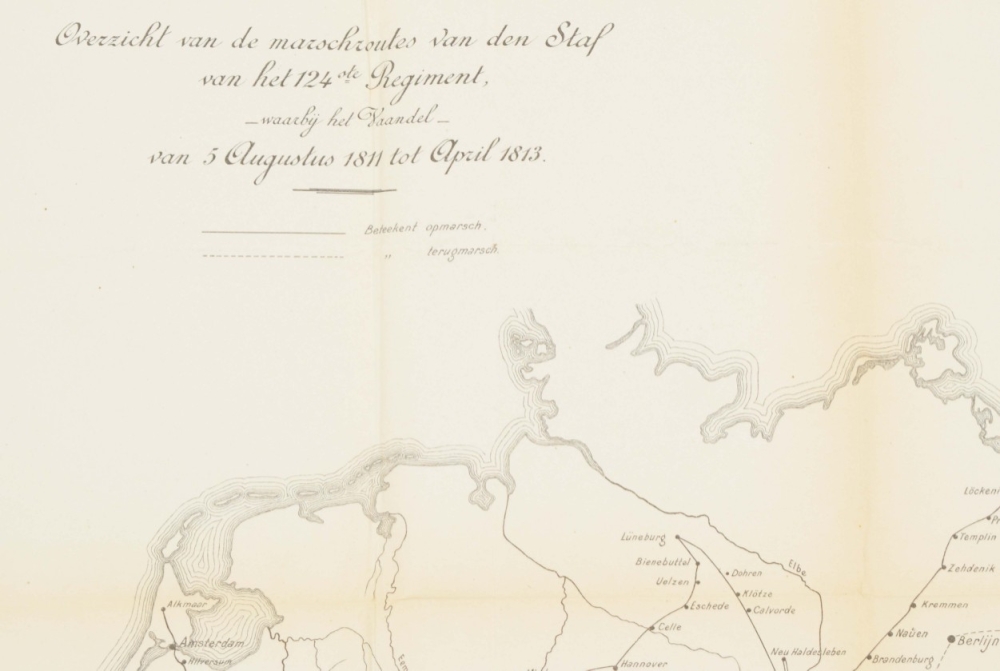 Overzicht van de marschroutes van den Staf
van het 124ste Regiment,
— waarbij het Vaandel —
van 5 Augustus 1811 tot April 1813.
Beteekent opmarsch.
„ terugmarsch.
Löcken
Templin
Lüneburg
Bienebuttel
Elbe
Zehdenik
Dohren
Uelzen
Klötze
Alkmaar
Eschede
Calvorde
Kremmen
Celle
Naüen
Amsterdam
Berlijn
Neu Haldesleben
Brandenburg
Hilversum
Hannover